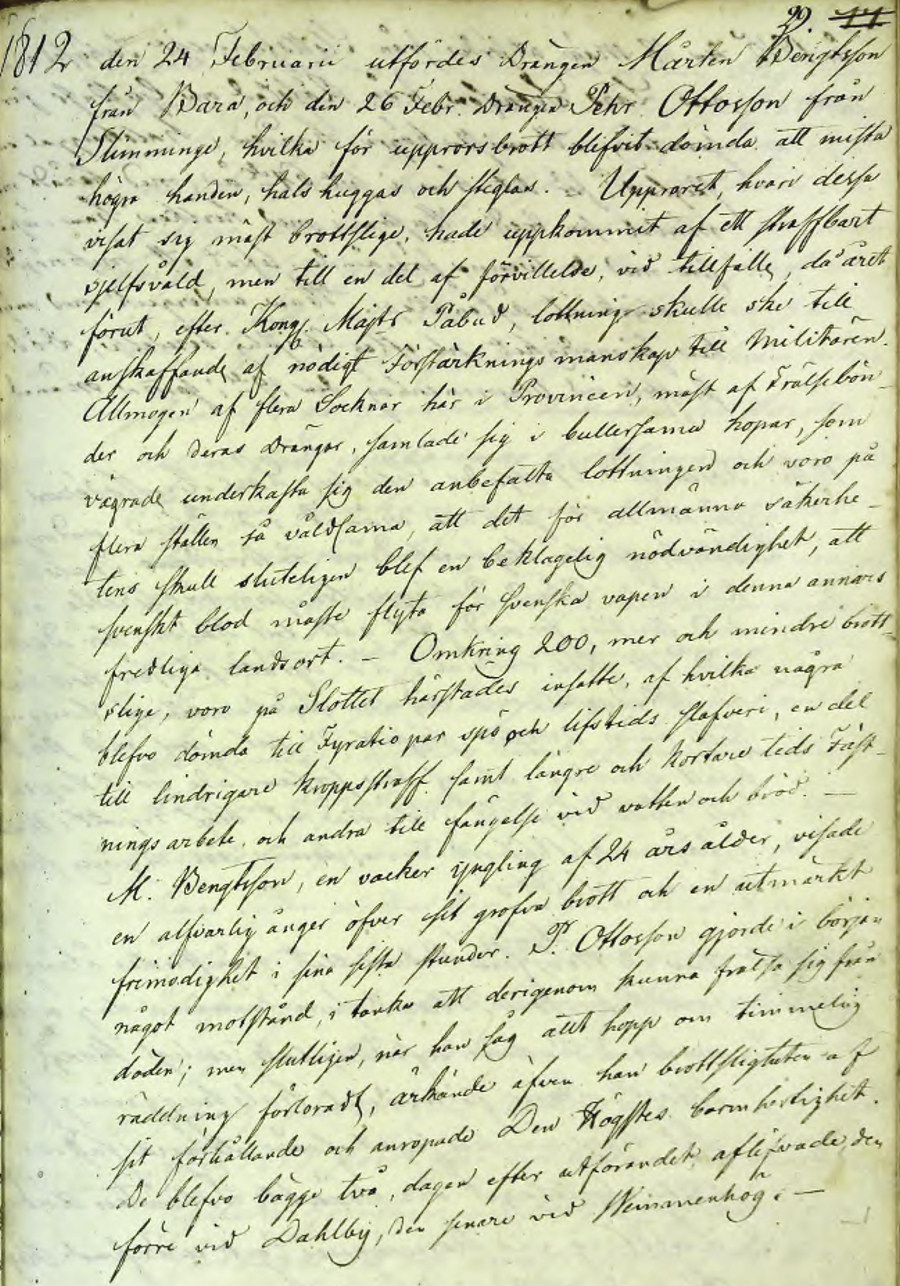 29. 14
1812 den 24 Februarii utfördes Drängen Mårten Bengtsson
från Bara, och den 26 Febr. Drängen Pehr Ottosson från
Slimminge, hvilka för upprorsbrott blifvit dömda att mista
högra handen, halshuggas och steglas. – Upproret, hvari dessa
visat sig mäst brottslige, hade uppkommit af ett straffbart
sjelfsvåld, men till en del af förvillelse, vid tillfälle, då året
förut, efter Kongl. Majts Påbud, lottning skulle ske till
anskaffande af nödigt Förstärknings manskap till Militären.
Allmogen af flera Socknar här i Provincen, mäst af Frälsebön-
der och deras Drängar, samlade sig i bullersama hopar, som
vägrade underkasta sig den anbefalta lottningen och voro på
flera ställen så våldsama, att det för allmänna säkerhe-
tens skull sluteligen blef en beklagelig nödvändighet, att
svenskt blod måste flyta för svenska vapen i denna annars
fredliga landsort. – Omkring 200, mer och mindre brott-
slige, voro på Slottet härstädes insatte, af hvilka några
blefvo dömda till Fyratio par spö och lifstids slafveri, en del
till lindrigare kroppsstraff samt längre och kortare tids Fäst-
nings arbete, och andra till fängelse vid vatten och bröd. –
M. Bengtsson, en vacker yngling af 24 års ålder, visade
en alfvarlig ånger öfver sit grofva brott och en utmärkt
frimodighet i sina sista stunder. P. Ottosson gjorde i början
något motstånd, i tanka att derigenom kunna frälsa sig från
döden; men slutligen, när han såg allt hopp om timmelig
räddning förloradt, ärkände äfven han brottsligheten af
sit förhållande och anropade Den Högstes barmhertighet.
De blefvo bägge två, dagen efter utförandet, aflifvade, den
förre vid Dahlby, den senare vid Wemmenhög. –